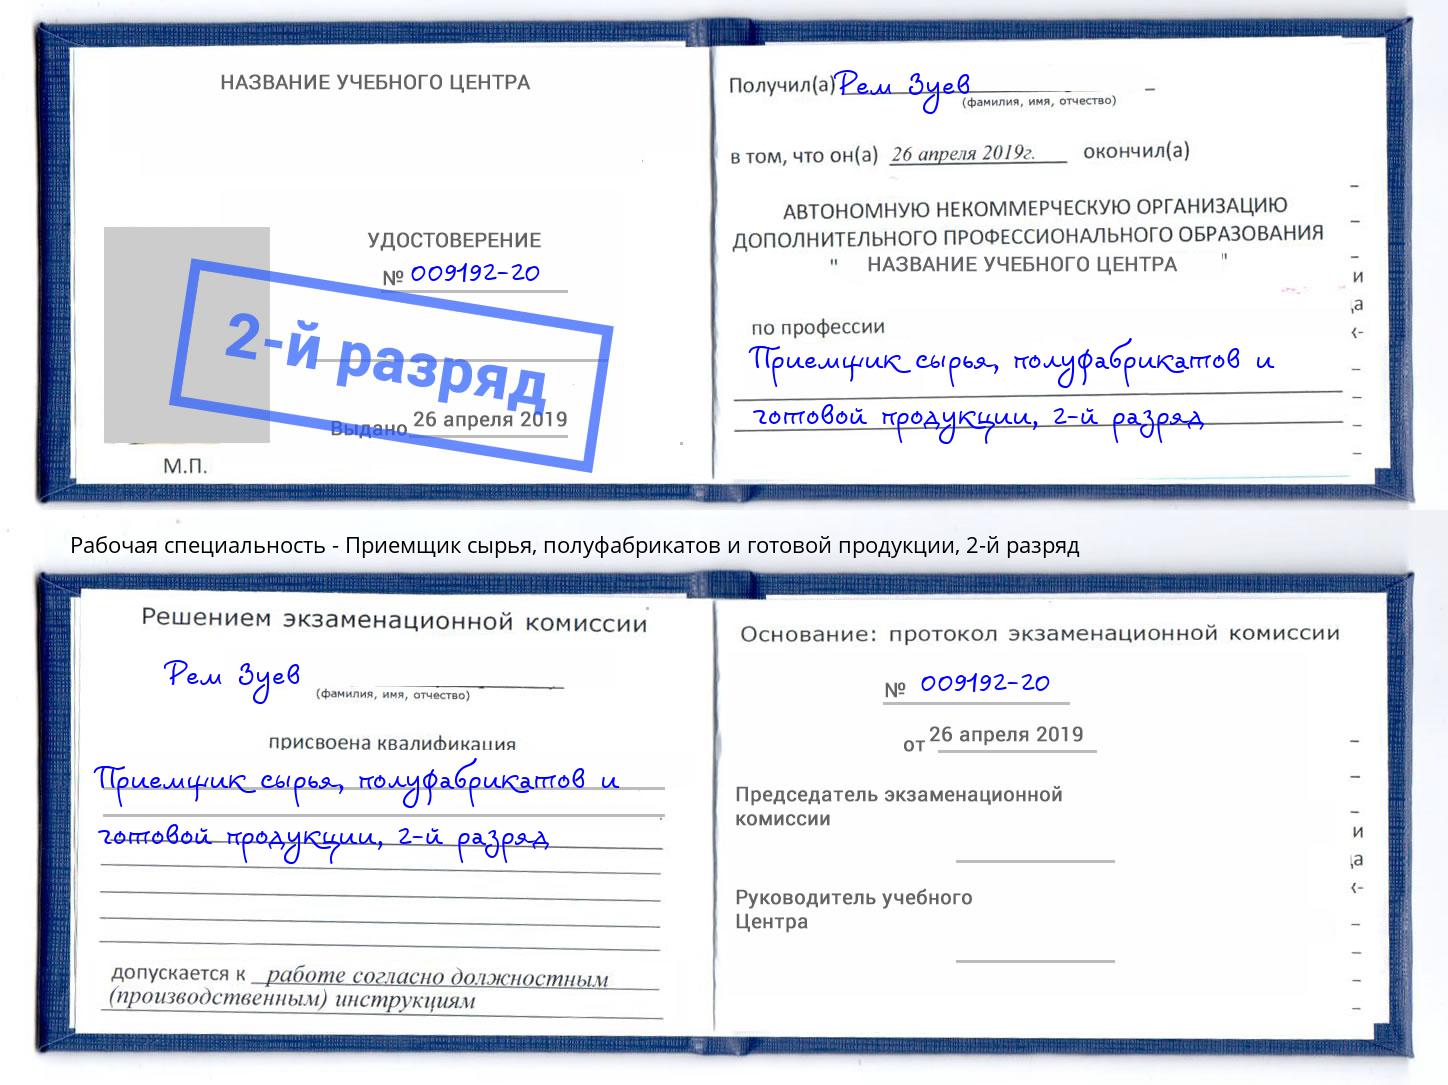 НАЗВАНИЕ УЧЕБНОГО ЦЕНТРА
УДОСТОВЕРЕНИЕ
№ 009192-20
2-й разряд
Выдано 26 апреля 2019
М.П.
Получил(а) Рем Зуев
(фамилия, имя, отчество)
в том, что он(а) 26 апреля 2019г. окончил(а)
АВТОНОМНУЮ НЕКОММЕРЧЕСКУЮ ОРГАНИЗАЦИЮ
ДОПОЛНИТЕЛЬНОГО ПРОФЕССИОНАЛЬНОГО ОБРАЗОВАНИЯ
" НАЗВАНИЕ УЧЕБНОГО ЦЕНТРА "
по профессии
Приемщик сырья, полуфабрикатов и
готовой продукции, 2-й разряд
Рабочая специальность - Приемщик сырья, полуфабрикатов и готовой продукции, 2-й разряд
Решением экзаменационной комиссии
Рем Зуев
(фамилия, имя, отчество)
присвоена квалификация
Приемщик сырья, полуфабрикатов и
готовой продукции, 2-й разряд
допускается к работе согласно должностным
(производственным) инструкциям
Основание: протокол экзаменационной комиссии
№ 009192-20
от 26 апреля 2019
Председатель экзаменационной
комиссии
Руководитель учебного
Центра